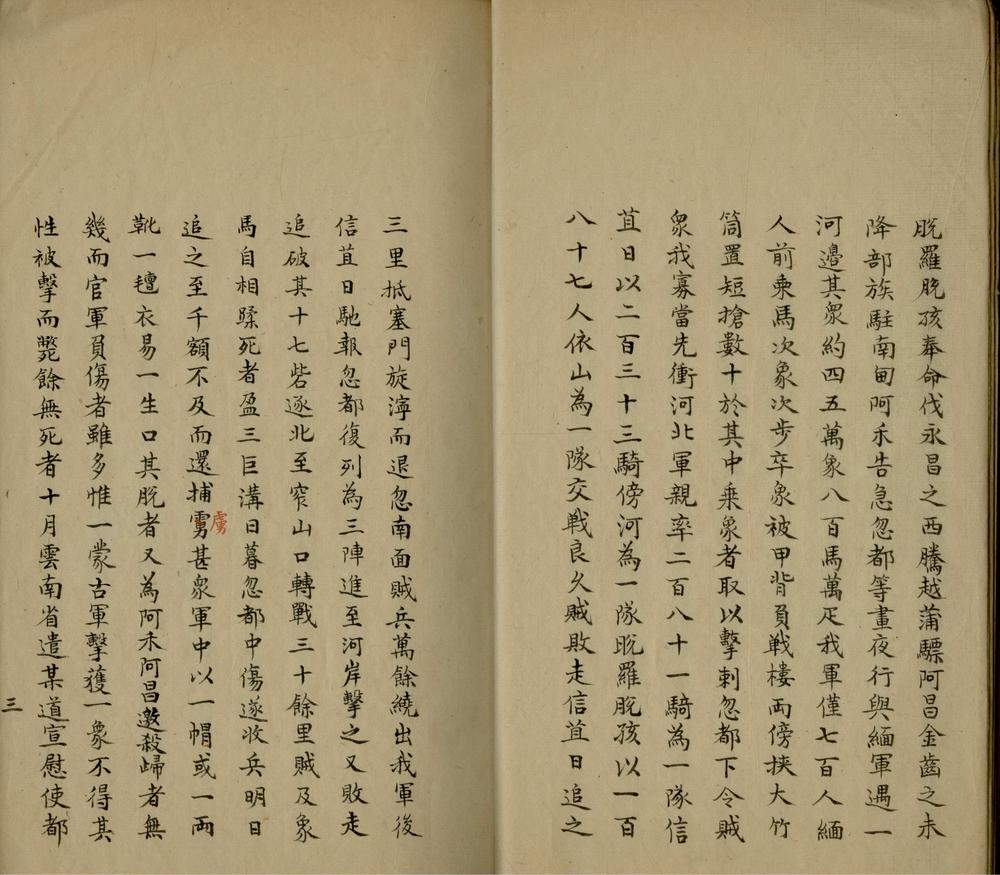 脫羅脫孩奉命伐永昌之西騰越蒲驃阿昌金齒之未
降部族駐南甸阿禾告急忽都等晝夜行與緬軍遇一
河邊其衆約四五萬象八百馬萬疋我軍僅七百人緬
人前乘馬次象次步卒象被甲背負戰樓兩傍挾大竹
筒置短搶數十於其中乘象者取以擊刺忽都下令賊
衆我寡當先衝河北軍親率二百八十一騎為一隊信
苴日以二百三十三騎傍河為一隊脫羅脫孩以一百
八十七人依山為一隊交戰良久賊敗走信苴日追之
三里抵塞門旋濘而退忽南面賊兵萬餘繞出我軍後
信苴日馳報忽都復列為三陣進至河岸擊之又敗走
追破其十七砦逐北至窄山口轉戰三十餘里賊及象
馬自相蹂死者盈三巨溝日暮忽都中傷遂收兵明日
追之至千額不及而還捕虜甚衆軍中以一帽或一兩
虜
靴一氊衣易一生口其脫者又為阿禾阿昌邀殺歸者無
幾而官軍負傷者雖多惟一蒙古軍擊獲一象不得其
性被擊而斃餘無死者十月雲南省遣某道宣慰使都
三